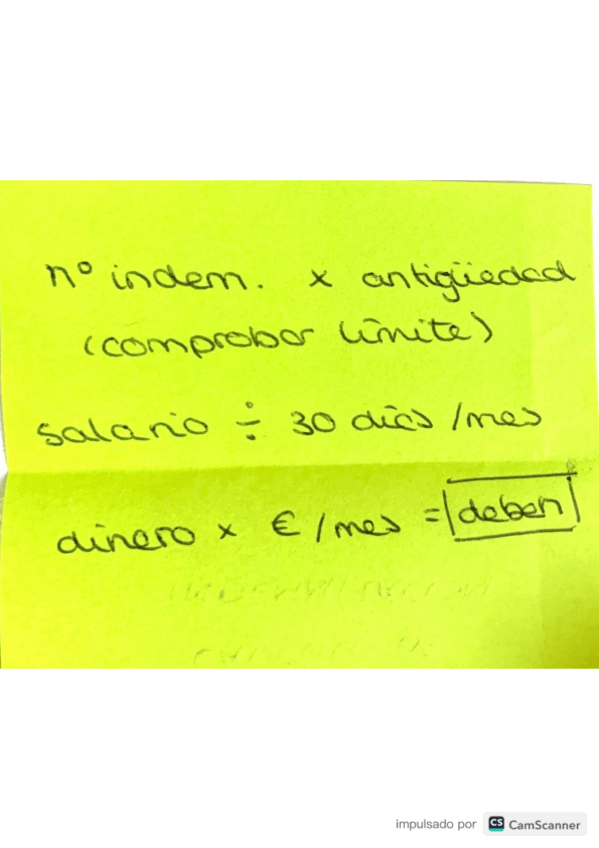 nº indem. x antigüedad
(comprobar límite)
salario ÷ 30 días /mes
dinero x € /mes = deben
impulsado por CS CamScanner